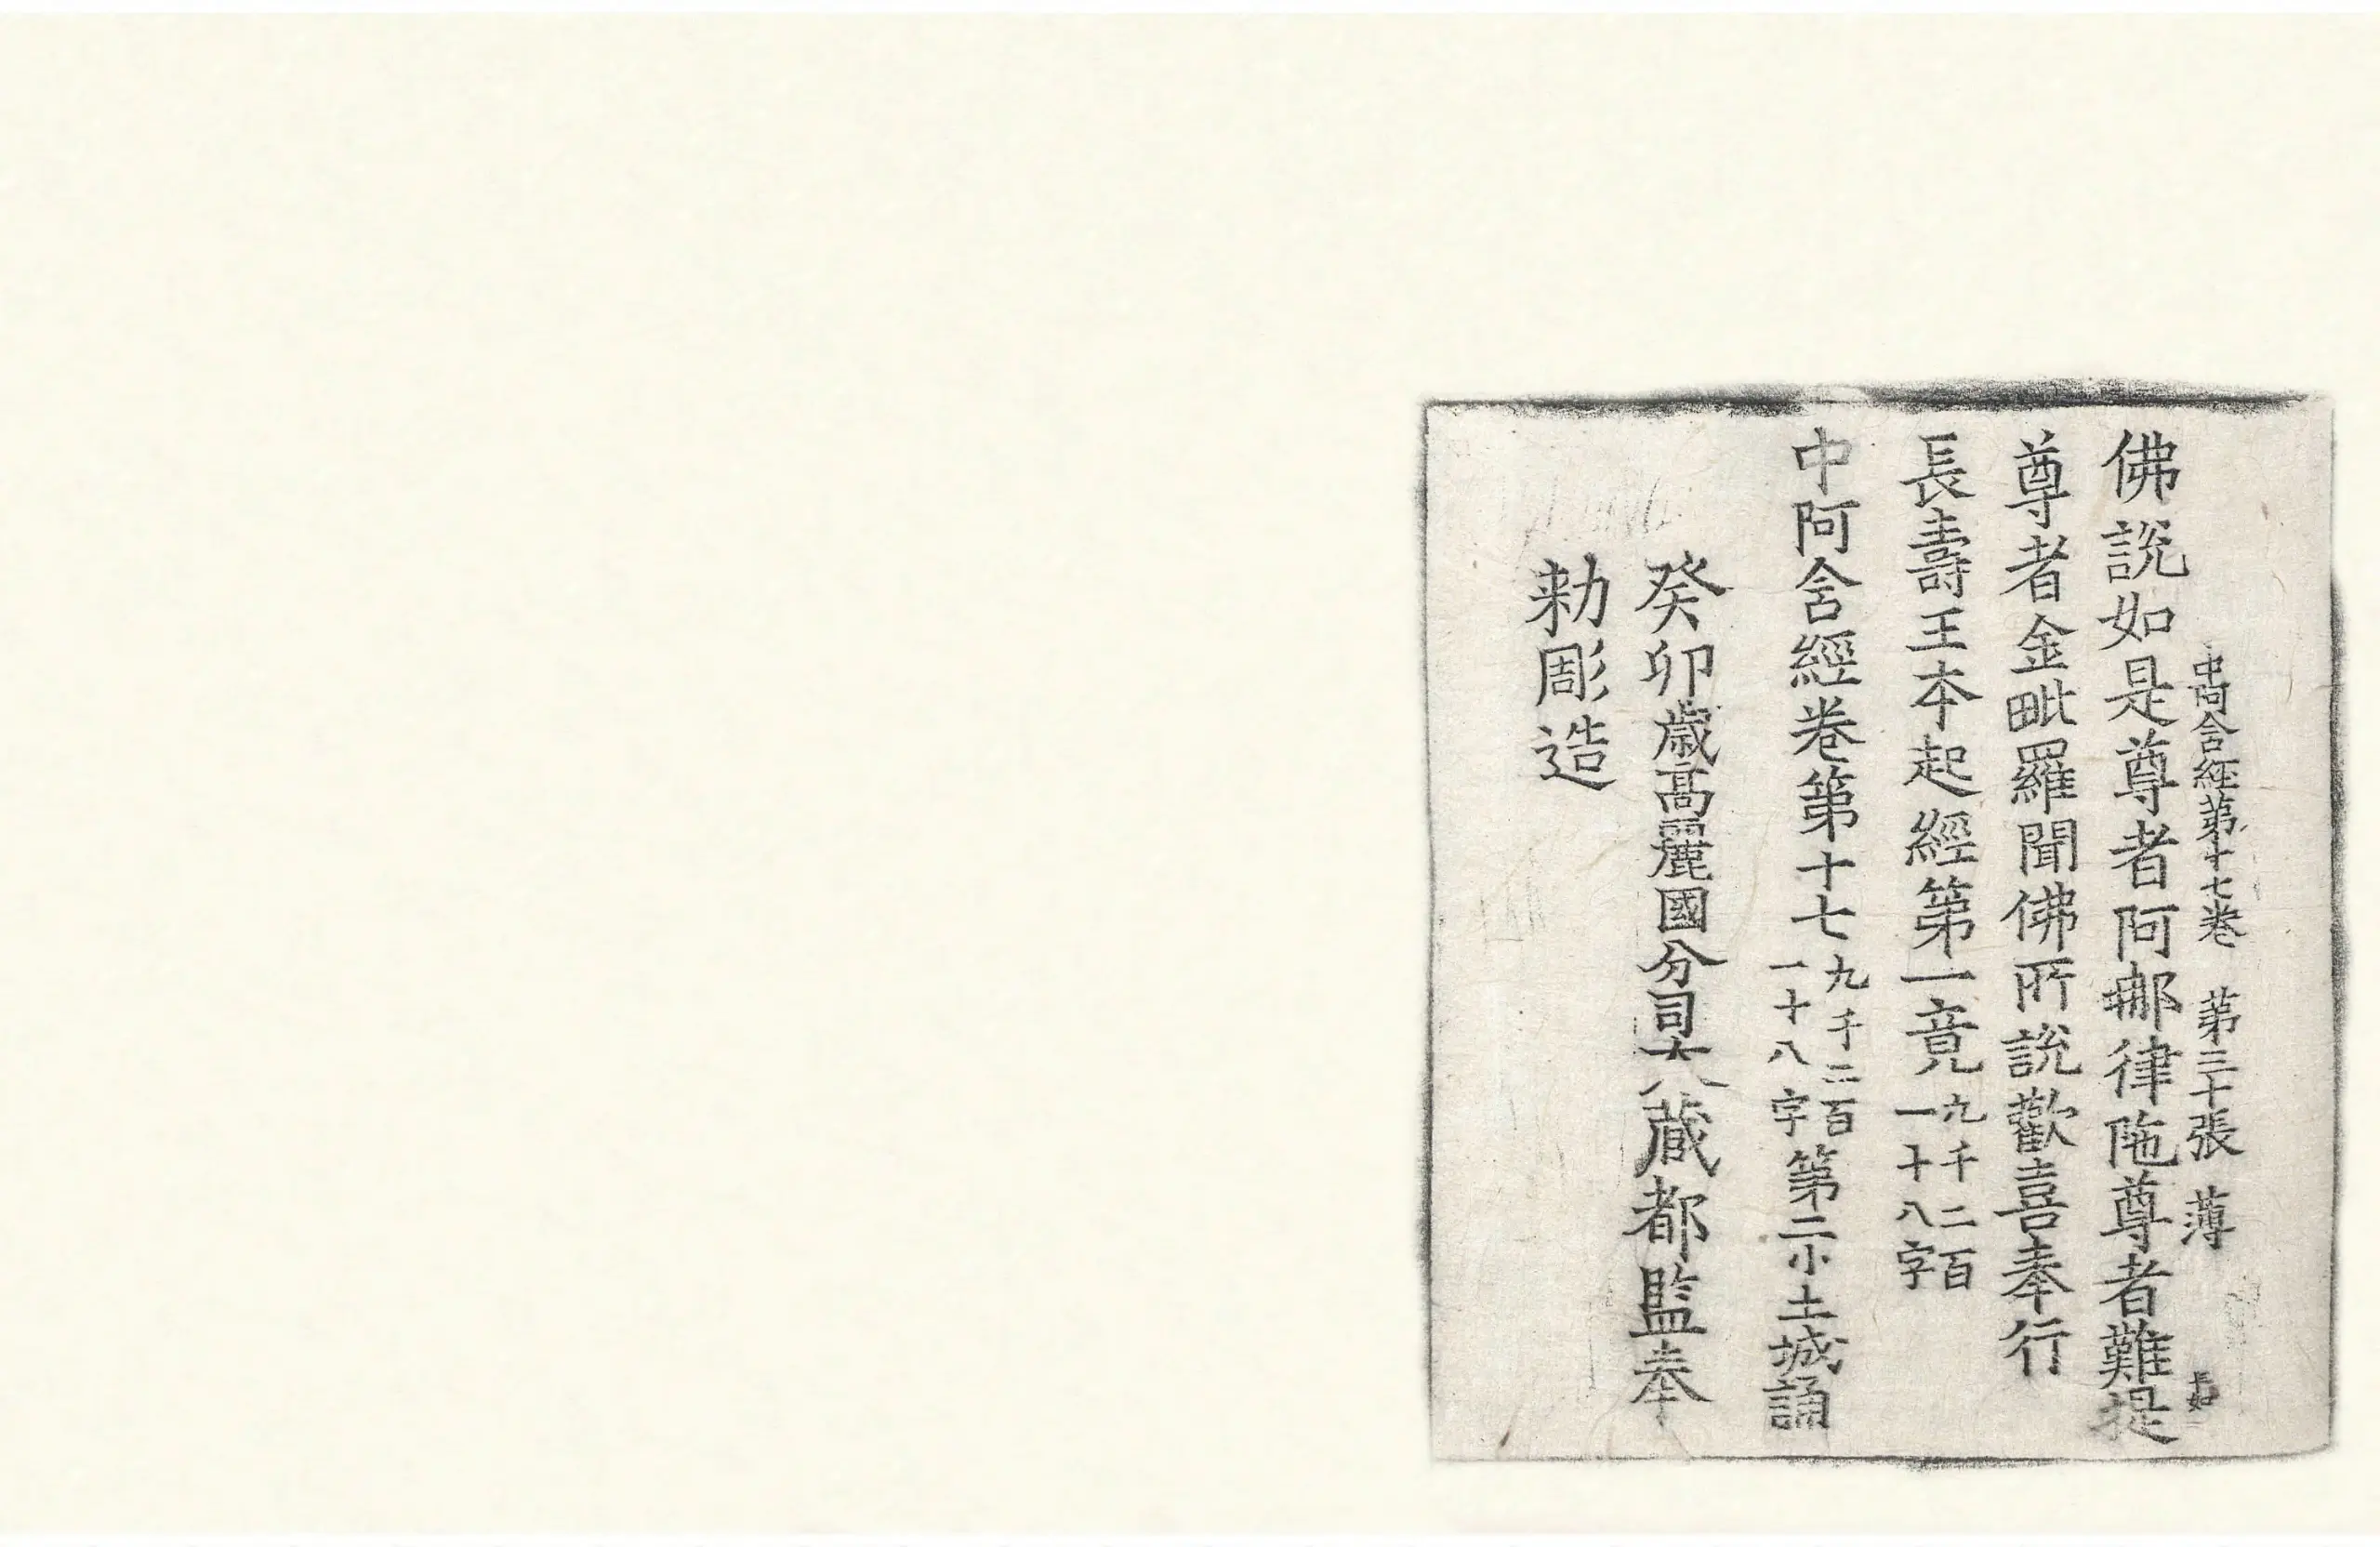 中阿含經第十七卷　第三十張　薄
佛說如是尊者阿那律陁尊者難提
尊者金毗羅聞佛所說歡喜奉行
長壽王本起經第一竟九千二百一十八字
中阿含經卷第十七九千二百一十八字第二小土城誦
癸卯歲高麗國分司大藏都監奉
勑彫造